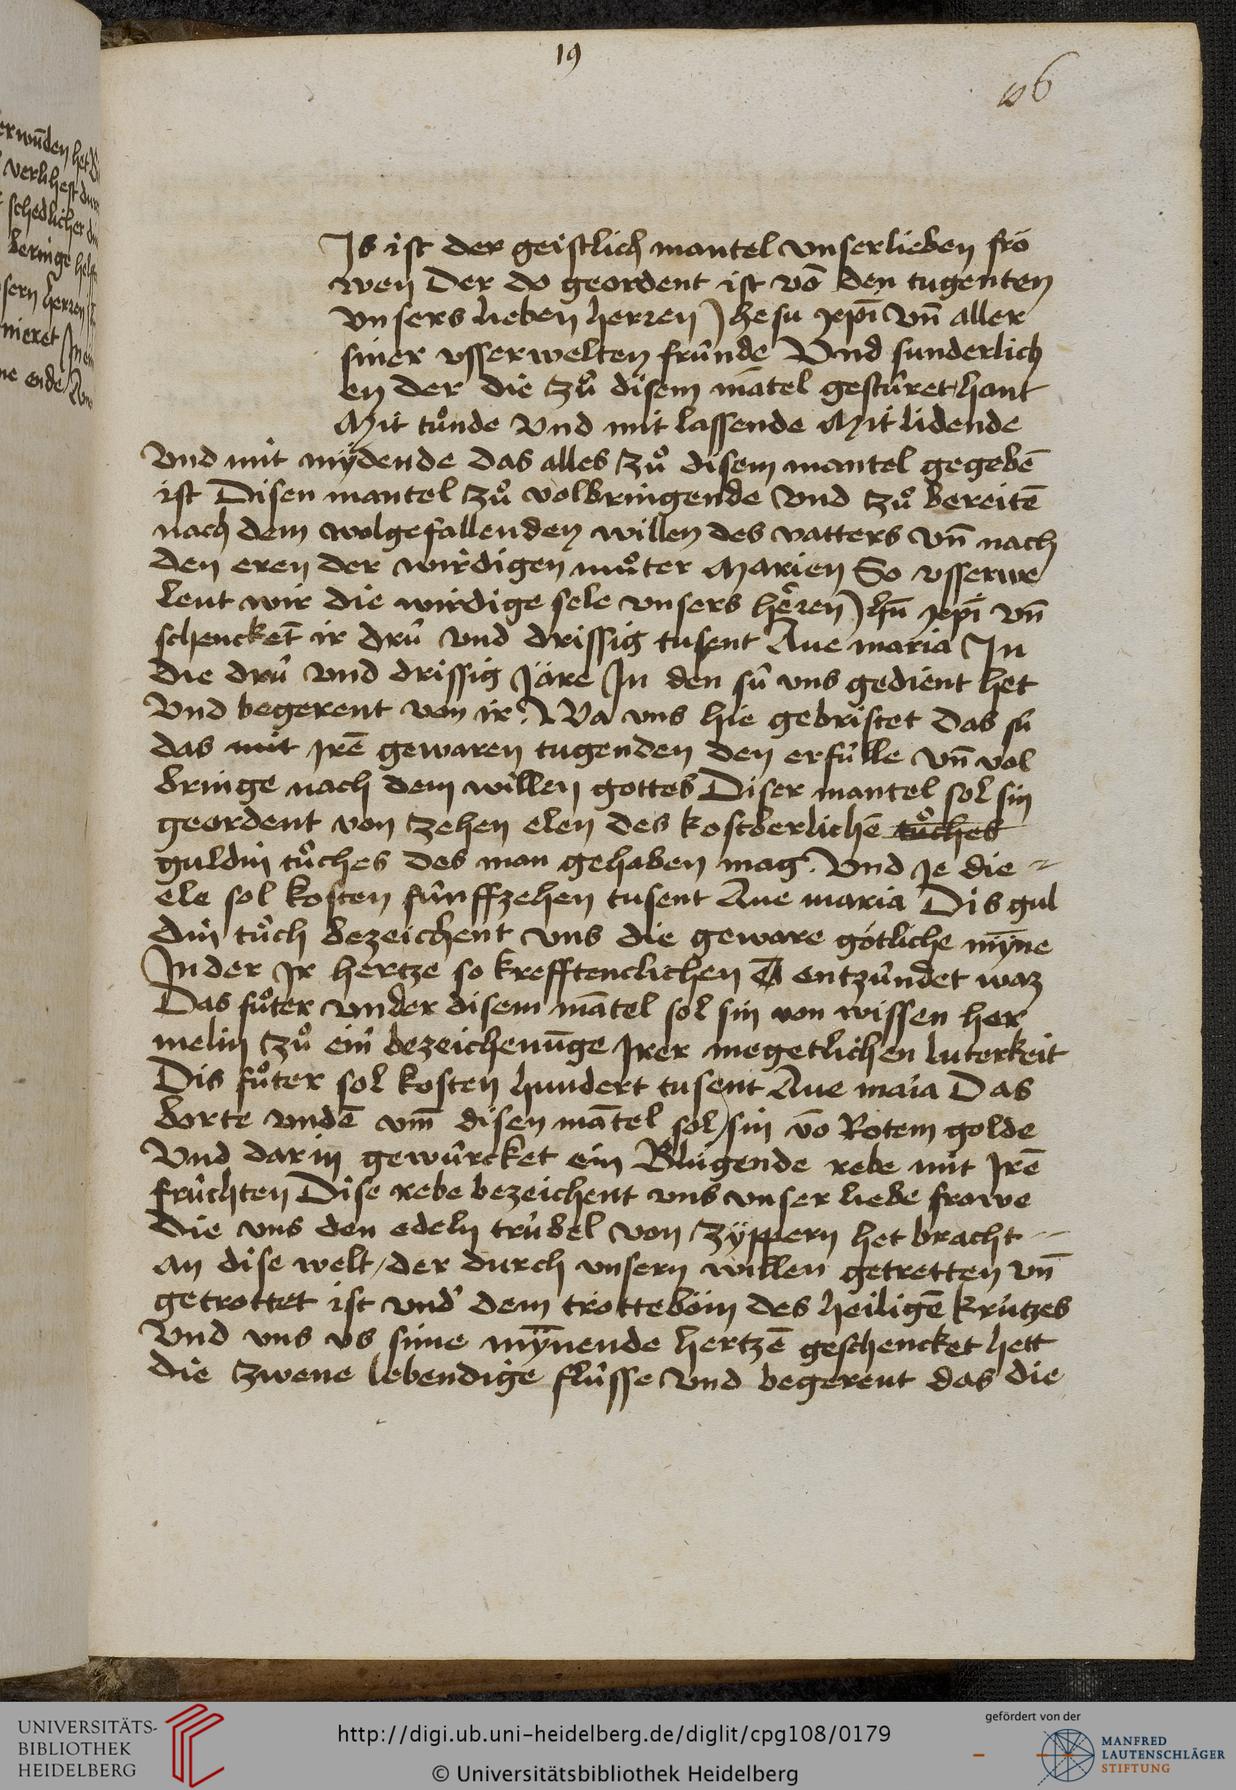 19
Js ist der geistlich mantel vnser lieben fro
wen Der do geordent ist vō den tugenten
vnsers lieben herren Jhesu xp̄i vn̄ aller
siner vsserwelten frúnde Vnd sunderlich
en der die zů disem mātel gestúret hant
Mit tůnde Vnd mit lassende Mit lidende
Vnd mit mýdende das alles zů disem mantel gegebē
ist Disen mantel zů volbringende Vnd zů bereitē
nach dem wolgefallenden willen des vatters vn̄ nach
den eren der wirdigen můter Marien So vsserwe
lent wir die wirdige sele vnsers herren Jhū xp̄i vn̄
schencket ir drú vnd drissig tusent Aue maria Jn
die drú Vnd drissig Järe Jn den sú vns gedient het
Vnd begerent von ir Wa vns hie gebristet das sú
das mit Jrē gewaren tugenden den erfúlle vn̄ vol
bringe nach dem willen gottes Diser mantel sol sin
geordent von zehen elen des kostberlichē tůches
guldin tůches des man gehaben mag Vnd Je die
ele sol kosten fúnffzehen tusent Aue maria Dis gul
din tůch bezeichent vns die geware götliche mȳne
Jn der Jr hertze so krefftenclichen entzúndet waz
Das fůter vnder disem mātel sol sin von wissen her
melin zů ein bezeichenūge Jrer megetlichen luterkeit
Dis fůter sol kosten hundert tusent Aue maria Das
borte vndē vm̄ disen mātel sol sin vō Rotem golde
Vnd dar in gewúrcket ein Blúgende rebe mit Jrē
frúchten Dise rebe bezeichent vns vnser liebe frowe
die vns den edeln trúbel von zÿppern het bracht
an dise welt der durch vnsern willen getretten vn̄
getrottet ist vnd' dem trotteböin des heiligē krútzes
Vnd vns vs sime mȳnende hertzē geschencket hett
die zwene lebendige flússe Vnd begerent das die
UNIVERSITÄTS-
BIBLIOTHEK
HEIDELBERG
http://digi.ub.uni-heidelberg.de/diglit/cpg108/0179
© Universitätsbibliothek Heidelberg
gefördert von der
MANFRED
LAUTENSCHLÄGER
STIFTUNG